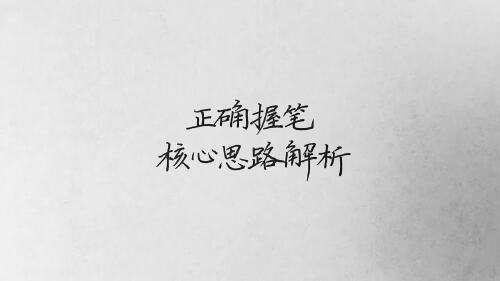 正确握笔
核心思路解析